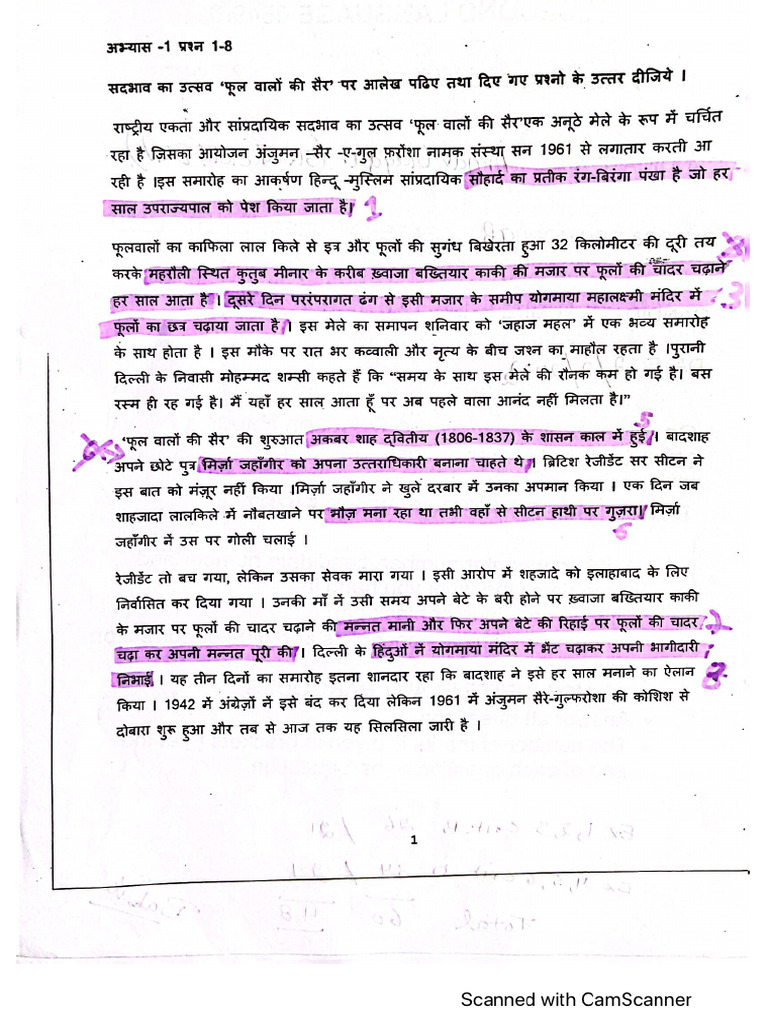 अभ्यास -1 प्रश्न 1-8
सदभाव का उत्सव ‘फूल वालों की सैर’ पर आलेख पढिए तथा दिए गए प्रश्नो के उत्तर दीजिये ।
राष्ट्रीय एकता और सांप्रदायिक सदभाव का उत्सव ‘फूल वालों की सैर’एक अनूठे मेले के रूप में चर्चित
रहा है जिसका आयोजन अंजुमन –सैर -ए-गुल फ़रोशा नामक संस्था सन 1961 से लगातार करती आ
रही है ।इस समारोह का आकर्षण हिन्दू –मुस्लिम सांप्रदायिक सौहार्द का प्रतीक रंग-बिरंगा पंखा है जो हर
साल उपराज्यपाल को पेश किया जाता है। 1
फूलवालों का काफिला लाल किले से इत्र और फूलों की सुगंध बिखेरता हुआ 32 किलोमीटर की दूरी तय
करके महरौली स्थित कुतुब मीनार के करीब ख़्वाजा बख्तियार काकी की मजार पर फूलों की चादर चढ़ाने
हर साल आता है । दूसरे दिन पररंपरागत ढंग से इसी मजार के समीप योगमाया महालक्ष्मी मंदिर में 3
फूलों का छत्र चढ़ाया जाता है । इस मेले का समापन शनिवार को ‘जहाज महल’ में एक भव्य समारोह
के साथ होता है । इस मौके पर रात भर कव्वाली और नृत्य के बीच जश्न का माहौल रहता है ।पुरानी
दिल्ली के निवासी मोहम्मद शम्सी कहते हैं कि “समय के साथ इस मेले की रौनक कम हो गई है। बस
रस्म ही रह गई है। मैं यहाँ हर साल आता हूँ पर अब पहले वाला आनंद नहीं मिलता है।”
5
‘फूल वालों की सैर’ की शुरुआत अकबर शाह द्वितीय (1806-1837) के शासन काल में हुई । बादशाह
अपने छोटे पुत्र मिर्ज़ा जहाँगीर को अपना उत्तराधिकारी बनाना चाहते थे । ब्रिटिश रेजीडेंट सर सीटन ने
इस बात को मंज़ूर नहीं किया ।मिर्ज़ा जहाँगीर ने खुले दरबार में उनका अपमान किया । एक दिन जब
शाहजादा लालकिले में नौबतखाने पर मौज़ मना रहा था तभी वहाँ से सीटन हाथी पर गुज़रा। मिर्ज़ा
6
जहाँगीर नें उस पर गोली चलाई ।
रेजीडेंट तो बच गया, लेकिन उसका सेवक मारा गया । इसी आरोप में शहजादे को इलाहाबाद के लिए
निर्वासित कर दिया गया । उनकी माँ नें उसी समय अपने बेटे के बरी होने पर ख़्वाजा बख्तियार काकी
के मजार पर फूलों की चादर चढ़ाने की मन्नत मानी और फिर अपने बेटे की रिहाई पर फूलों की चादर
चढ़ा कर अपनी मन्नत पूरी की । दिल्ली के हिंदुओं नें योगमाया मंदिर में भेंट चढ़ाकर अपनी भागीदारी
निभाई । यह तीन दिनों का समारोह इतना शानदार रहा कि बादशाह ने इसे हर साल मनाने का ऐलान 8
किया । 1942 में अंग्रेज़ों नें इसे बंद कर दिया लेकिन 1961 में अंजुमन सैरे-गुल्फरोशा की कोशिश से
दोबारा शुरू हुआ और तब से आज तक यह सिलसिला जारी है ।
1
Scanned with CamScanner